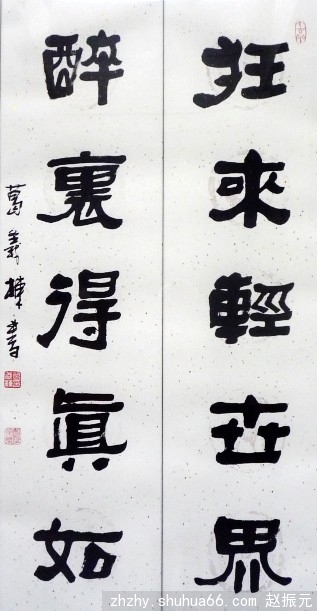 狂來輕世界
醉裏得真如
zhzhy.shuhua66.com 赵振元